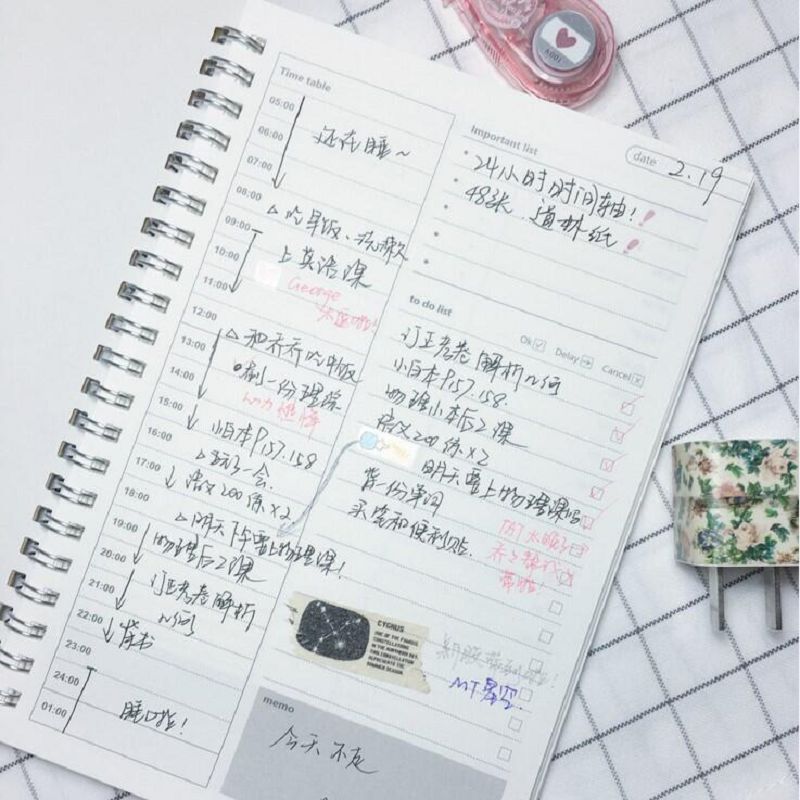 Time table
05:00
06:00
还在睡~
07:00
08:00
△吃早饭、洗漱
09:00
10:00
上英语课
11:00
George
12:00
13:00
△和乔乔吃中饭
14:00
刷一份理综
15:00
小白本P157.158
16:00
△玩了一会.
17:00
语文200练×2
18:00
△明天下午要上物理课!
19:00
物理后2课
20:00
21:00
订正考卷解析
几何
22:00
背书
23:00
24:00
01:00
睡啦!
Important list
date 2.19
24小时时间轴!
48张 道林纸!
to do list
Ok Delay Cancel
订正考卷解析几何
小白本P157.158.
物理小本后2课
语文200练×2
明天要上物理课
背一份单词
买笔和便利贴.
CYGNUS
ONE OF THE FAMOUS
CONSTELLATIONS
IN THE NORTHERN SKY.
THIS CONSTELLATION
REPRESENTS THE
SUMMER SEASON.
MT星空.
memo
今天不